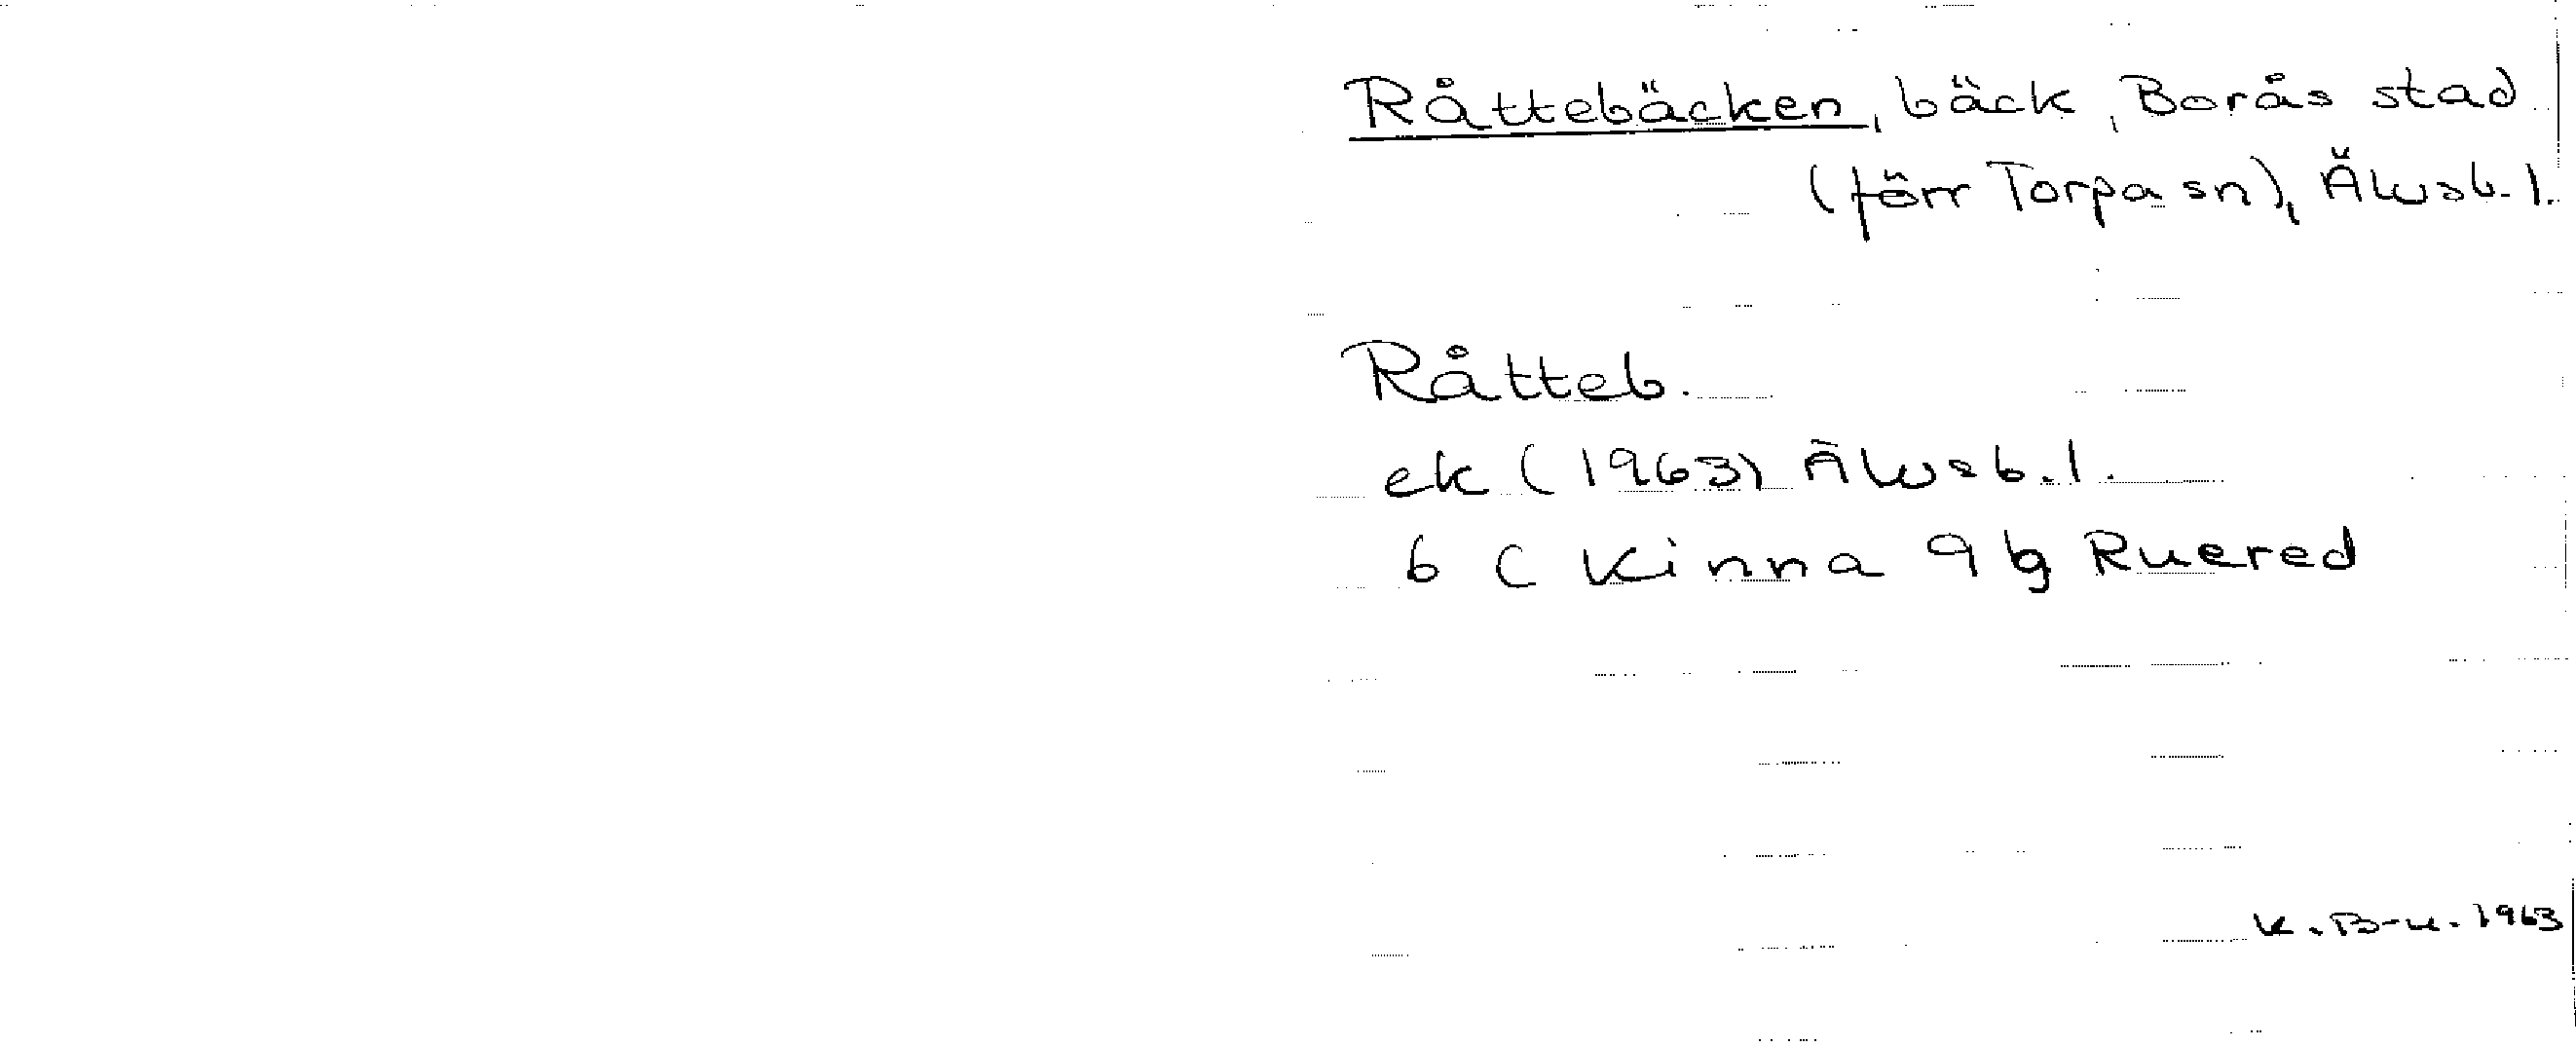 Råttebäcken, bäck, Borås stad
(förr Torpa sn), Älvsb. l.
Råtteb.
ek (1963) Älvsb. l.
6 C Kinna 9 g Ruered
K. B-n. 1963